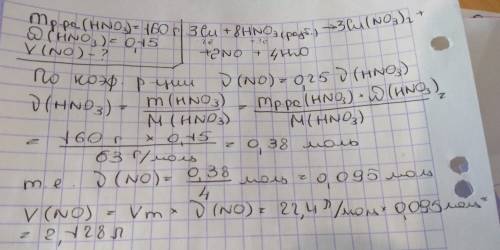 mр-ра(HNO₃)=160 г | 3Cu + 8HNO₃(разб) → 3Cu(NO₃)₂ +
ω(HNO₃)=0,15 + 2NO + 4H₂O
V(NO) - ?
По коэф. р-ции ν(NO)=0,25 ν(HNO₃)
ν(HNO₃) = m(HNO₃) / M(HNO₃) = mр-ра(HNO₃) · ω(HNO₃) / M(HNO₃) =
= 160 г × 0,15 / 63 г/моль = 0,38 моль
т.е. ν(NO) = 0,38 / 4 моль = 0,095 моль
V(NO) = Vm × ν(NO) = 22,4 л/моль × 0,095 моль =
= 2,128 л